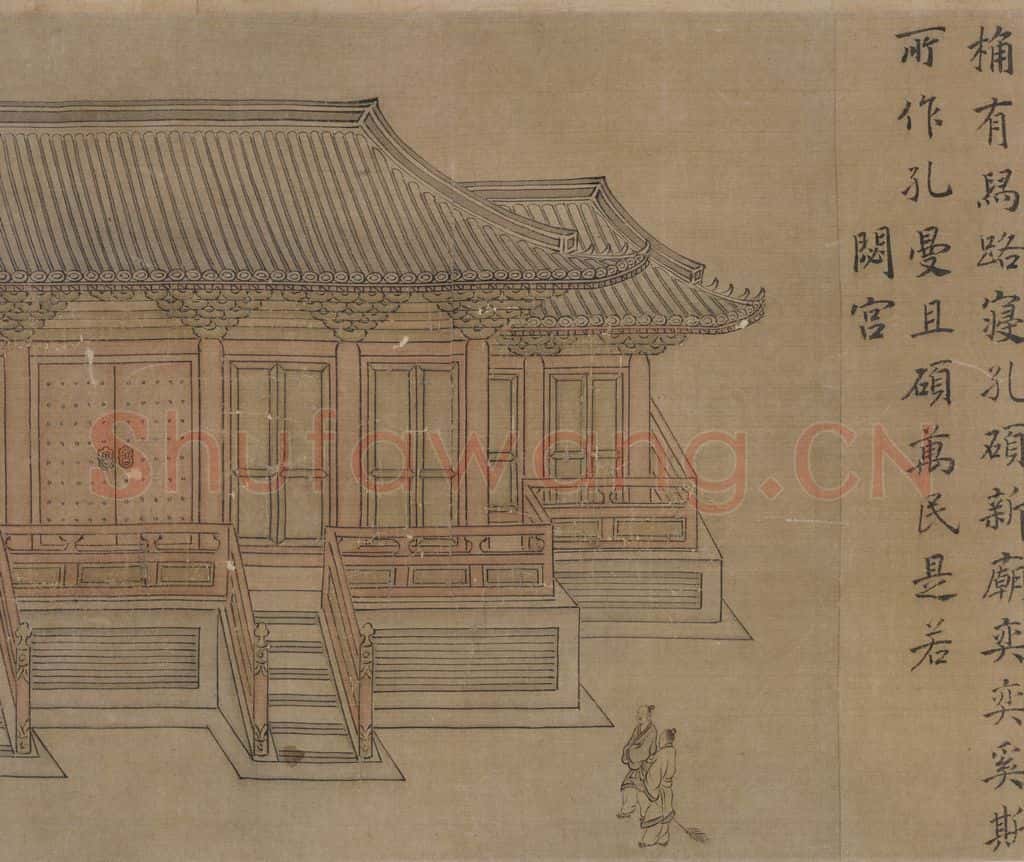 桷有舄路寢孔碩新廟奕奕奚斯
所作孔曼且碩萬民是若
閟宮
Shufawang.CN